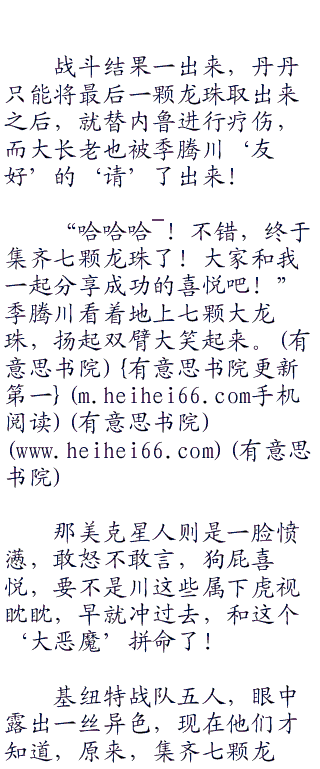 战斗结果一出来，丹丹
只能将最后一颗龙珠取出来
之后，就替内鲁进行疗伤，
而大长老也被季腾川‘友
好’的‘请’了出来！
“哈哈哈¯！不错，终于
集齐七颗龙珠了！大家和我
一起分享成功的喜悦吧！”
季腾川看着地上七颗大龙
珠，扬起双臂大笑起来。(有
意思书院) {有意思书院更新
第一} (m.heihei66.com手机
阅读) (有意思书院)
(www.heihei66.com) (有意思
书院)
那美克星人则是一脸愤
懑，敢怒不敢言，狗屁喜
悦，要不是川这些属下虎视
眈眈，早就冲过去，和这个
‘大恶魔’拼命了！
基纽特战队五人，眼中
露出一丝异色，现在他们才
知道，原来，集齐七颗龙